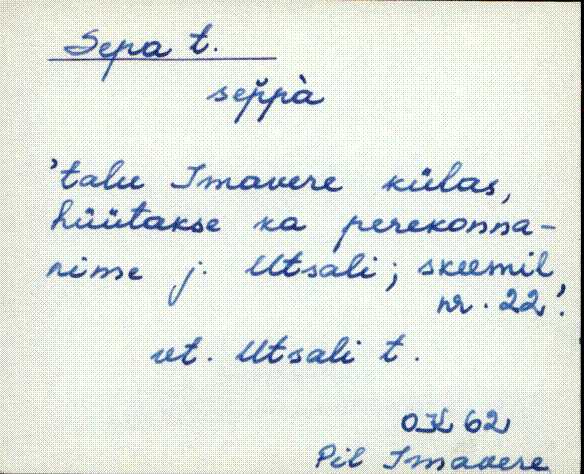 Sepa t.
sep̆pà
'talu Imavere külas,
hüütakse ka perekonna-
nime j. Utsali; skeemil
nr. 22'.
vt. Utsali t.
62
Pil Imavere